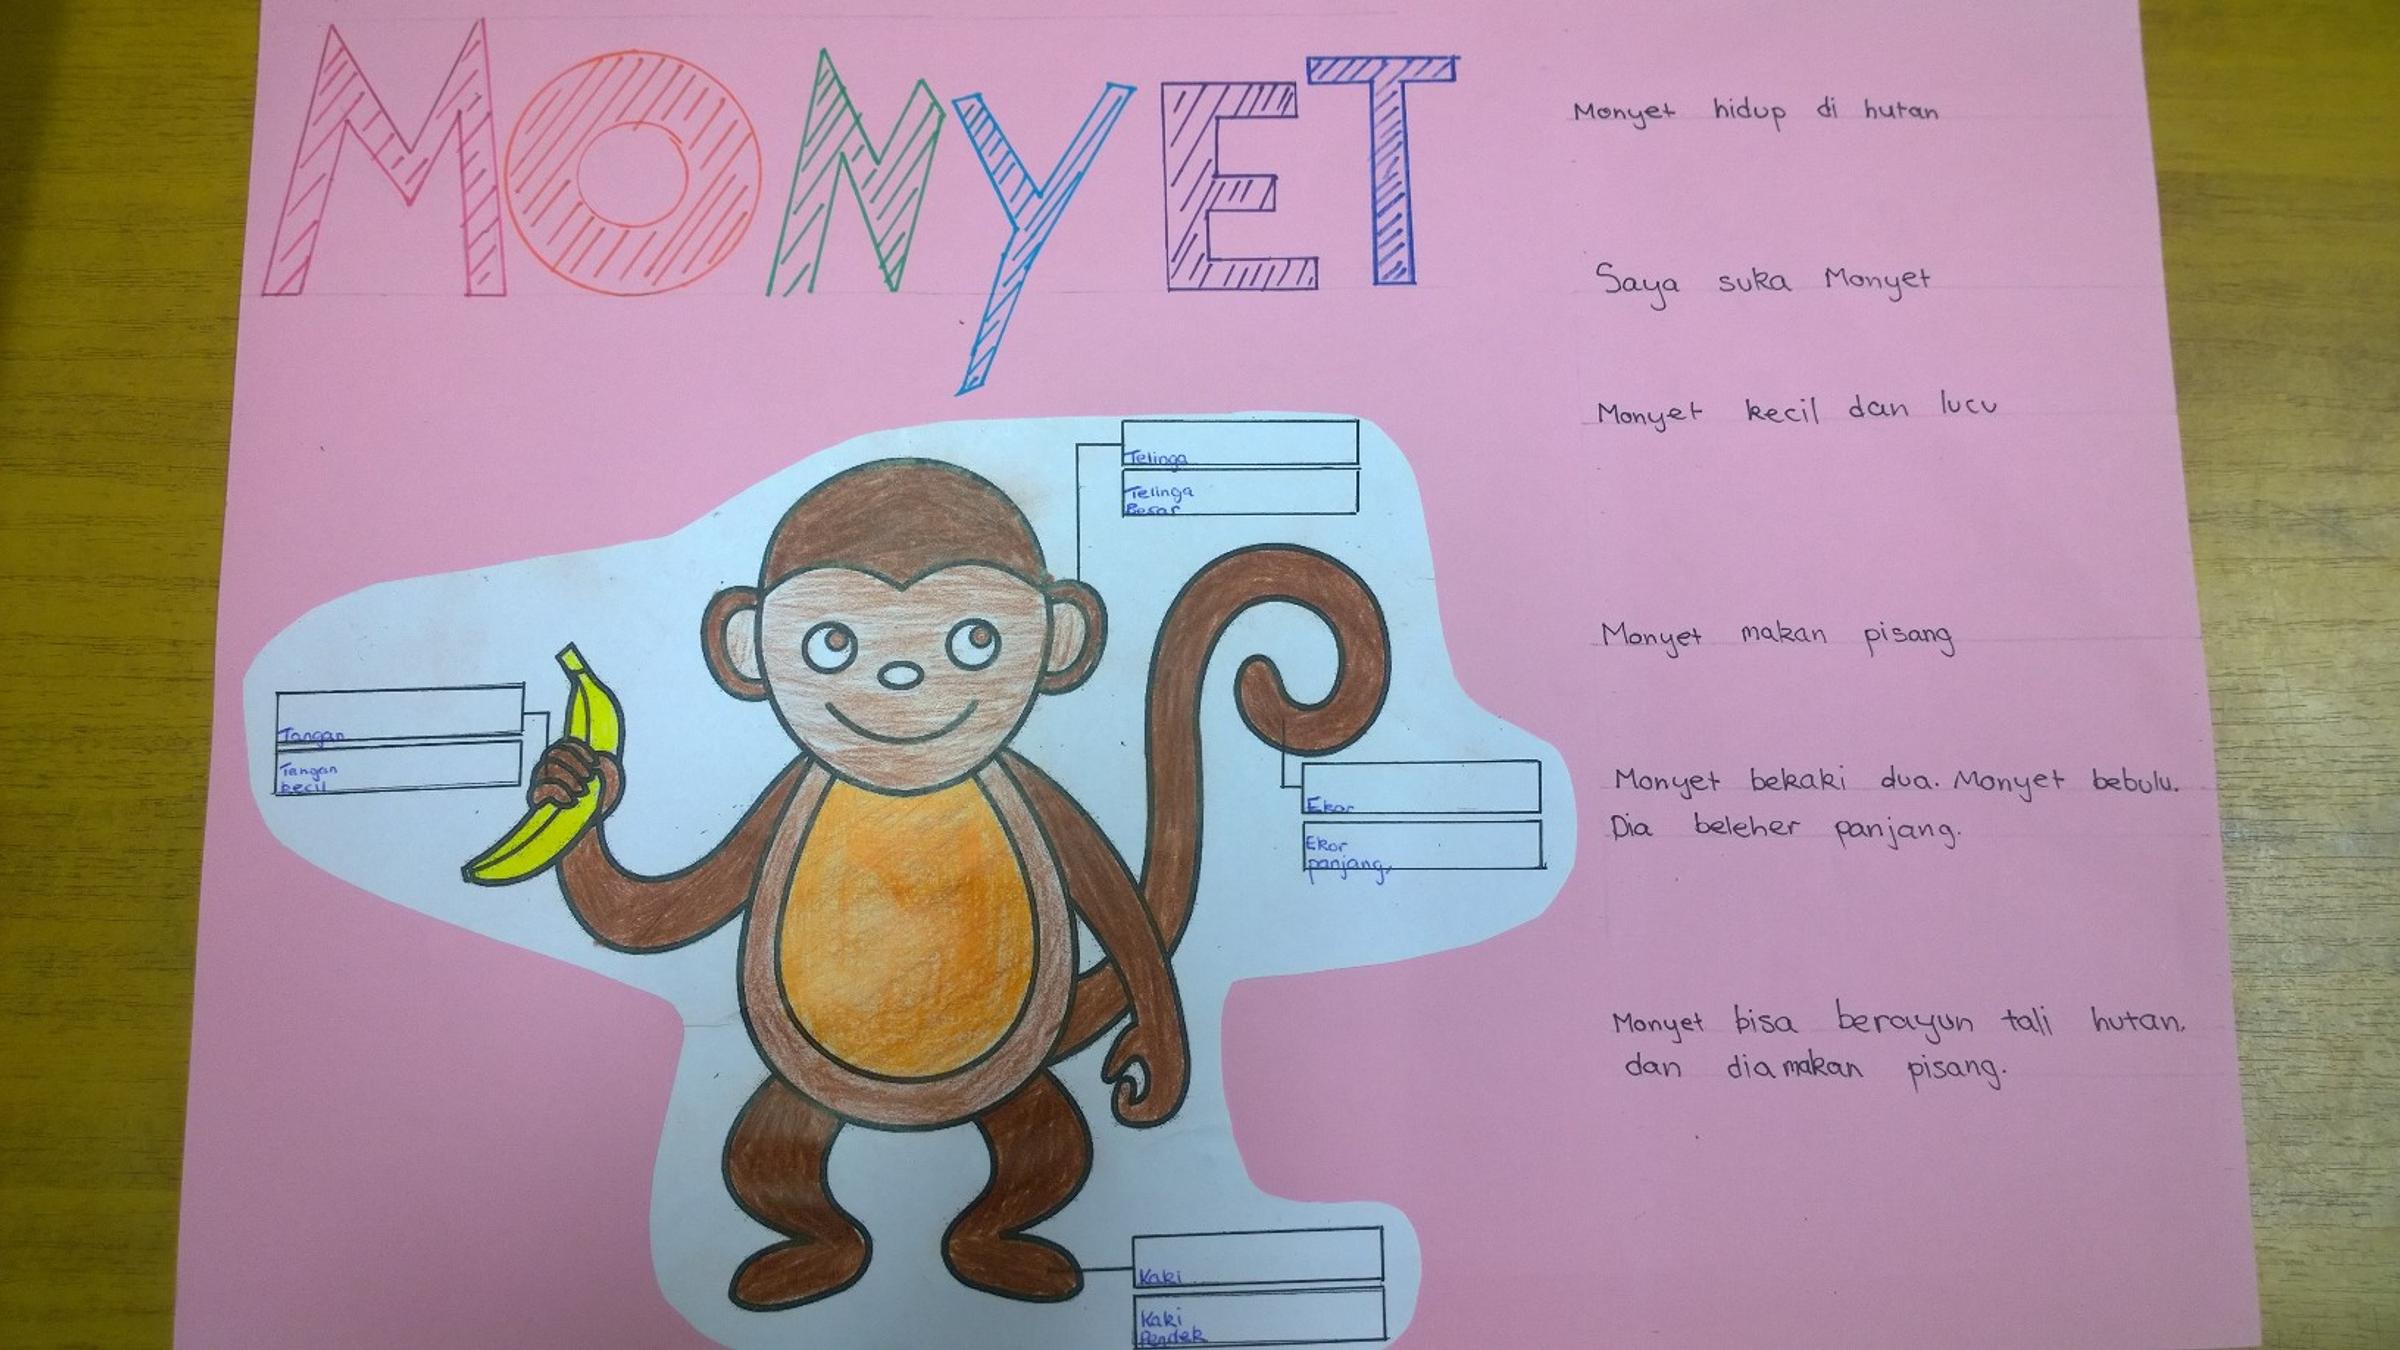 MONYET
Monyet hidup di hutan
Saya suka Monyet
Monyet kecil dan lucu
Monyet makan pisang
Monyet bekaki dua. Monyet bebulu.
Dia beleher panjang.
Monyet bisa berayun tali hutan.
dan dia makan pisang.
Telinga
Telinga
Besar
Tangan
Tangan
kecil
Ekor
Ekor
panjang,
Kaki
Kaki
Pendek